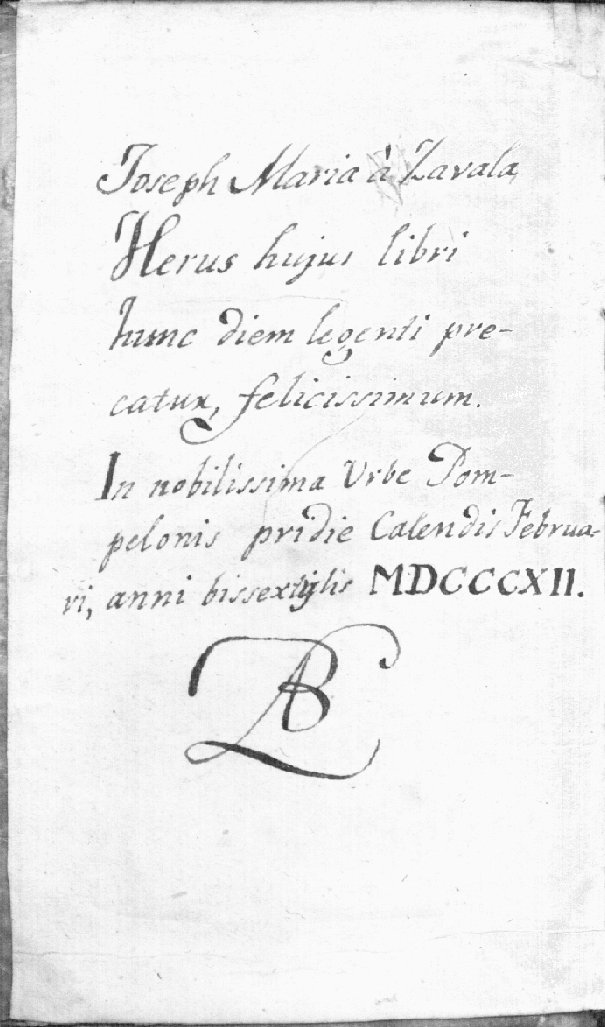 Joseph Maria à Zavala,
Herus hujus libri
hunc diem legenti pre-
catur, felicissimum.
In nobilissima Urbe Pom-
pelonis pridie Calendis Februa-
ri, anni bissextylis MDCCCXII.